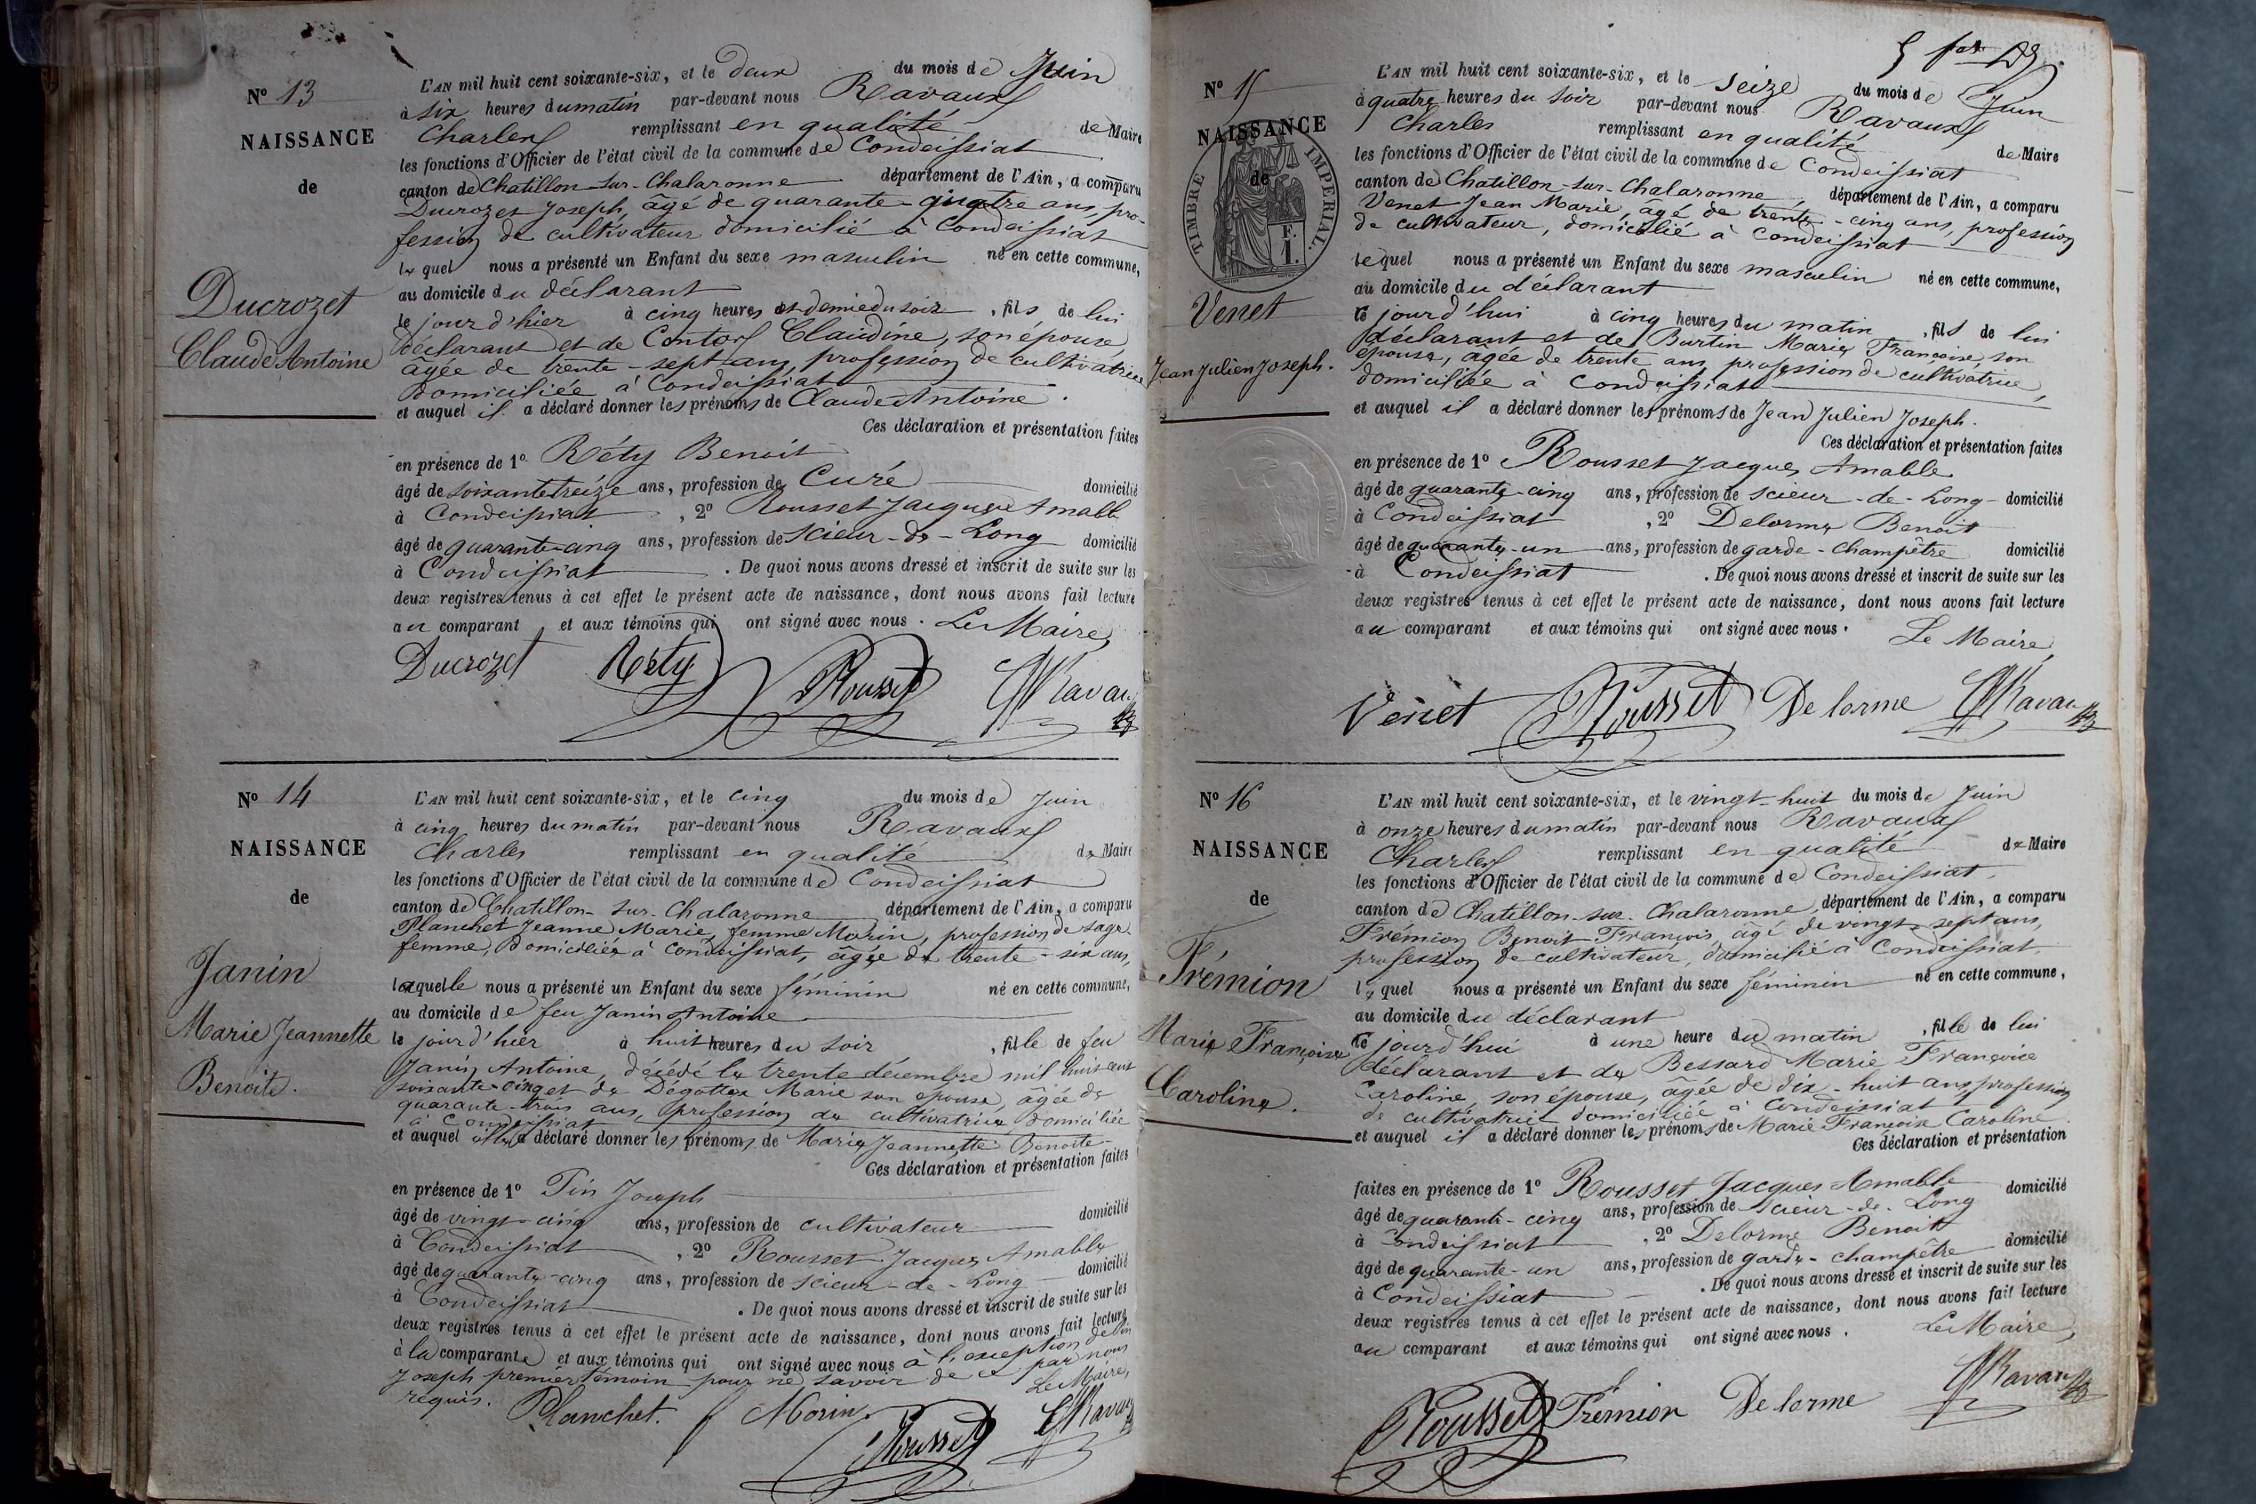 Nº 13
NAISSANCE
de
Ducrozet
Claude Antoine
L'AN mil huit cent soixante-six, et le deux du mois de Juin
à six heures du matin par-devant nous Ravaux
Charles remplissant en qualité de Maire
les fonctions d'Officier de l'état civil de la commune de Condeissiat
canton de Chatillon-sur-Chalaronne département de l'Ain, a comparu
Ducrozet Joseph, âgé de quarante-quatre ans, pro-
fession de cultivateur domicilié à Condeissiat
lequel nous a présenté un Enfant du sexe masculin né en cette commune,
au domicile du déclarant
le jour d'hier à cinq heures et demie du soir, fils de lui
déclarant et de Contos Claudine, son épouse
âgée de trente-sept ans, profession de cultivatrice
domiciliée à Condeissiat
et auquel il a déclaré donner les prénoms de Claude Antoine.
Ces déclaration et présentation faites
en présence de 1º Réty Benoit
âgé de soixante treize ans, profession de Curé domicilié
à Condeissiat, 2º Rousset Jacques Amabl
âgé de quarante-cinq ans, profession de scieur-de-Long domicilié
à Condeissiat. De quoi nous avons dressé et inscrit de suite sur les
deux registres tenus à cet effet le présent acte de naissance, dont nous avons fait lecture
au comparant et aux témoins qui ont signé avec nous. Le Maire,
Ducrozet Réty Rousset Ravaux
Nº 14
NAISSANCE
de
Janin
Marie Jeannette
Benoite.
L'AN mil huit cent soixante-six, et le cinq du mois de Juin
à cinq heures du matin par-devant nous Ravaux
Charles remplissant en qualité de Maire
les fonctions d'Officier de l'état civil de la commune de Condeissiat
canton de Chatillon-sur-Chalaronne département de l'Ain, a comparu
Planchet Jeanne Marie, femme Morin, profession de sage
femme, domiciliée à Condeissiat, âgée de trente-six ans,
laquelle nous a présenté un Enfant du sexe féminin né en cette commune,
au domicile de feu Janin Antoine
le jour d'hier à huit heures du soir, fille de feu
Janin Antoine, décédé le trente décembre mil huit cent
soixante-cinq et de Dégottex Marie son épouse, âgée de
quarante-trois ans, profession de cultivatrice domiciliée
à Condeissiat
et auquel elle a déclaré donner les prénoms de Marie Jeannette Benoite
Ces déclaration et présentation faites
en présence de 1º Pin Joseph
âgé de vingt-cinq ans, profession de cultivateur domicilié
à Condeissiat, 2º Rousset Jacques Amable
âgé de quarante-cinq ans, profession de scieur-de-Long domicilié
à Condeissiat. De quoi nous avons dressé et inscrit de suite sur les
deux registres tenus à cet effet le présent acte de naissance, dont nous avons fait lecture
à la comparante et aux témoins qui ont signé avec nous à l'exception de Pin
Joseph premier témoin pour ne savoir de ce par nous
requis. Le Maire,
Planchet. f Morin. Rousset Ravaux
Nº 15
NAISSANCE
de
TIMBRE IMPERIAL.
F.
1.
Venet
Jean Julien Joseph.
L'AN mil huit cent soixante-six, et le seize du mois de Juin
à quatre heures du soir par-devant nous Ravaux
Charles remplissant en qualité de Maire
les fonctions d'Officier de l'état civil de la commune de Condeissiat
canton de Chatillon-sur-Chalaronne, département de l'Ain, a comparu
Venet Jean Marie, âgé de trente-cinq ans, profession
de cultivateur, domicilié à Condeissiat
lequel nous a présenté un Enfant du sexe masculin né en cette commune,
au domicile du déclarant
ce jourd'hui à cinq heures du matin, fils de lui
déclarant et de Burtin Marie Françoise, son
épouse, âgée de trente ans, profession de cultivatrice,
domiciliée à Condeissiat
et auquel il a déclaré donner les prénoms de Jean Julien Joseph.
Ces déclaration et présentation faites
en présence de 1º Rousset Jacques Amable
âgé de quarante-cinq ans, profession de scieur-de-Long domicilié
à Condeissiat, 2º Delorme Benoit
âgé de quarante-un ans, profession de garde-champêtre domicilié
à Condeissiat. De quoi nous avons dressé et inscrit de suite sur les
deux registres tenus à cet effet le présent acte de naissance, dont nous avons fait lecture
au comparant et aux témoins qui ont signé avec nous. Le Maire,
Venet Rousset Delorme Ravaux
Nº 16
NAISSANCE
de
Frémion
Marie Françoise
Caroline.
L'AN mil huit cent soixante-six, et le vingt-huit du mois de Juin
à onze heures du matin par-devant nous Ravaux
Charles remplissant en qualité de Maire
les fonctions d'Officier de l'état civil de la commune de Condeissiat
canton de Chatillon-sur-Chalaronne, département de l'Ain, a comparu
Frémion Benoit François, âgé de vingt-sept ans,
profession de cultivateur, domicilié à Condeissiat,
lequel nous a présenté un Enfant du sexe féminin né en cette commune,
au domicile du déclarant
ce jourd'hui à une heure du matin, fille de lui
déclarant et de Bessard Marie Françoise
Caroline, son épouse, âgée de dix-huit ans, profession
de cultivatrice domiciliée à Condeissiat
et auquel il a déclaré donner les prénoms de Marie Françoise Caroline
Ces déclaration et présentation
faites en présence de 1º Rousset Jacques Amable domicilié
âgé de quarante-cinq ans, profession de scieur-de-Long
à Condeissiat, 2º Delorme Benoit
âgé de quarante-un ans, profession de garde-champêtre domicilié
à Condeissiat. De quoi nous avons dressé et inscrit de suite sur les
deux registres tenus à cet effet le présent acte de naissance, dont nous avons fait lecture
au comparant et aux témoins qui ont signé avec nous. Le Maire,
Rousset Frémion Delorme Ravaux